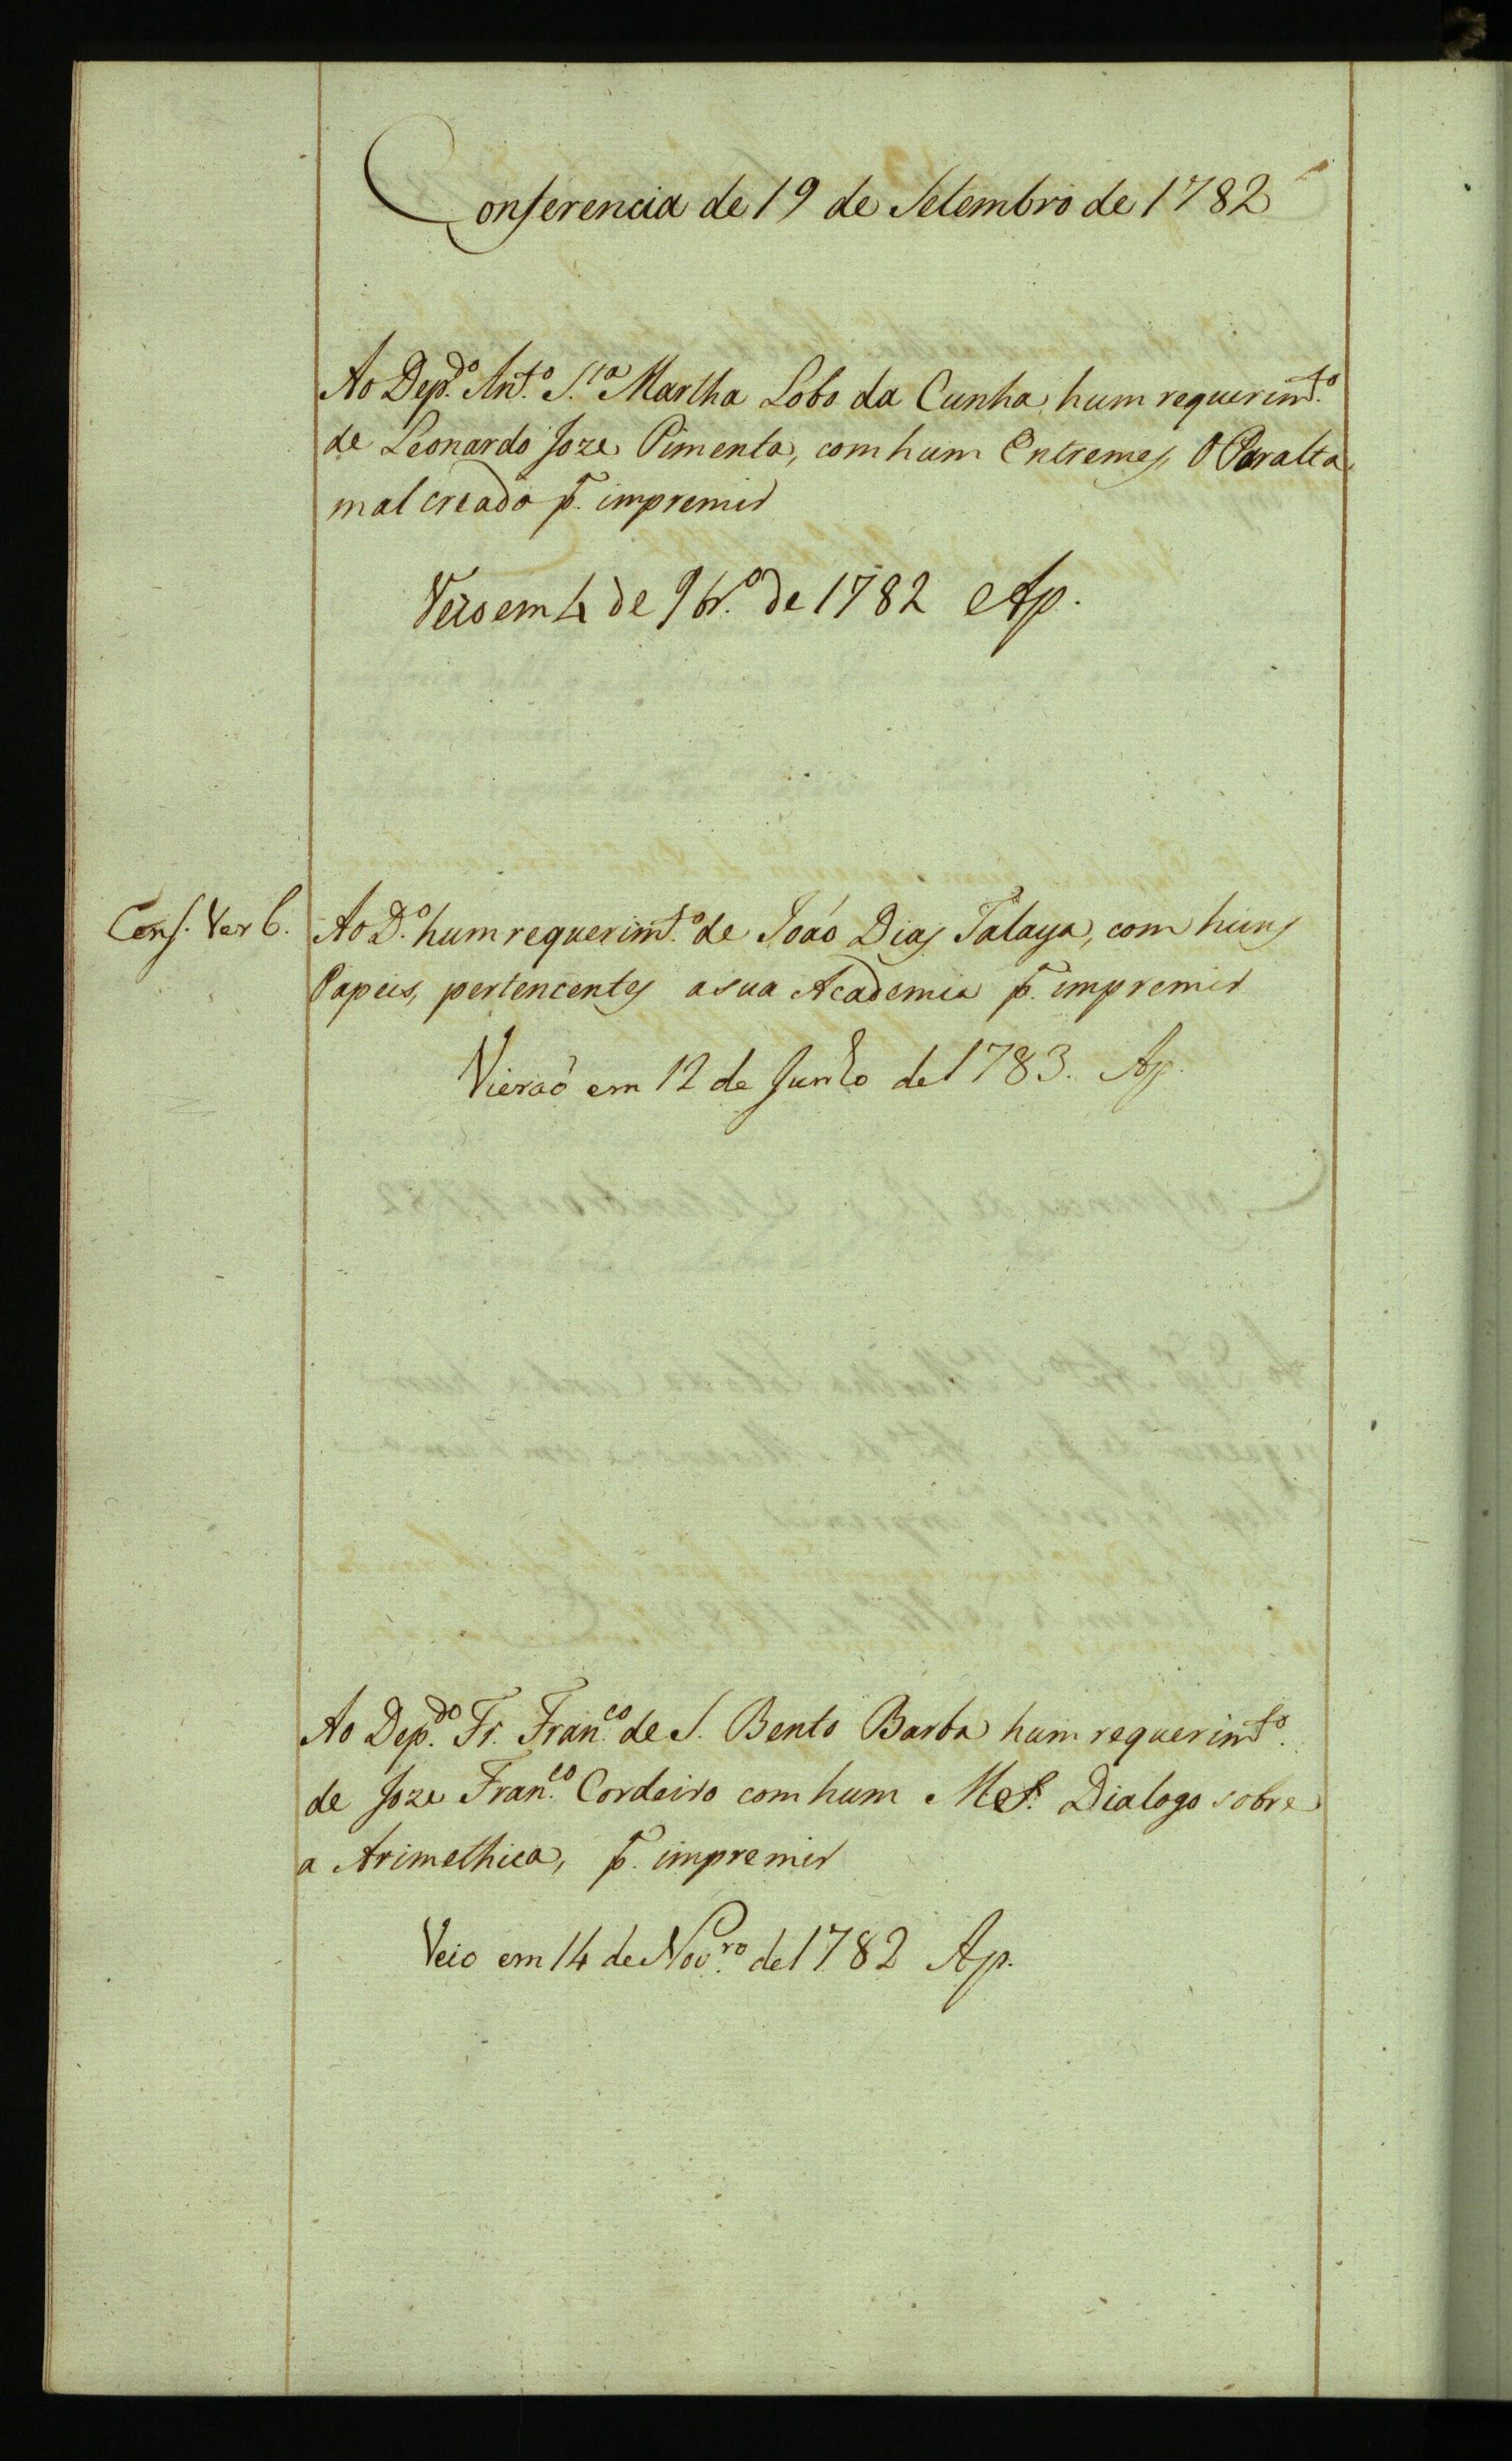 Conferencia de 19 de Setembro de 1782
Ao Dep.do Ant.o S.ta Martha Lobo da Cunha hum requerim.to
de Leonardo Joze Pimenta, com hum Entremes, O Peralta
mal creado p.a impremir
Veio em 4 de 9br.o de 1782 Ap.
Cens. Verb.
Ao D.o hum requerim.to de João Dias Talaya, com huns
Papeis, pertencentes a sua Academia p.a impremir
Vierão em 12 de Junho de 1783. Ap.
Ao Dep.do Fr. Fran.co de S. Bento Barba hum requerim.to
de Joze Fran.co Cordeiro com hum MS. Dialogo sobre
a Arimethica, p.a impremir
Veio em 14 de Nov.ro de 1782 Ap.